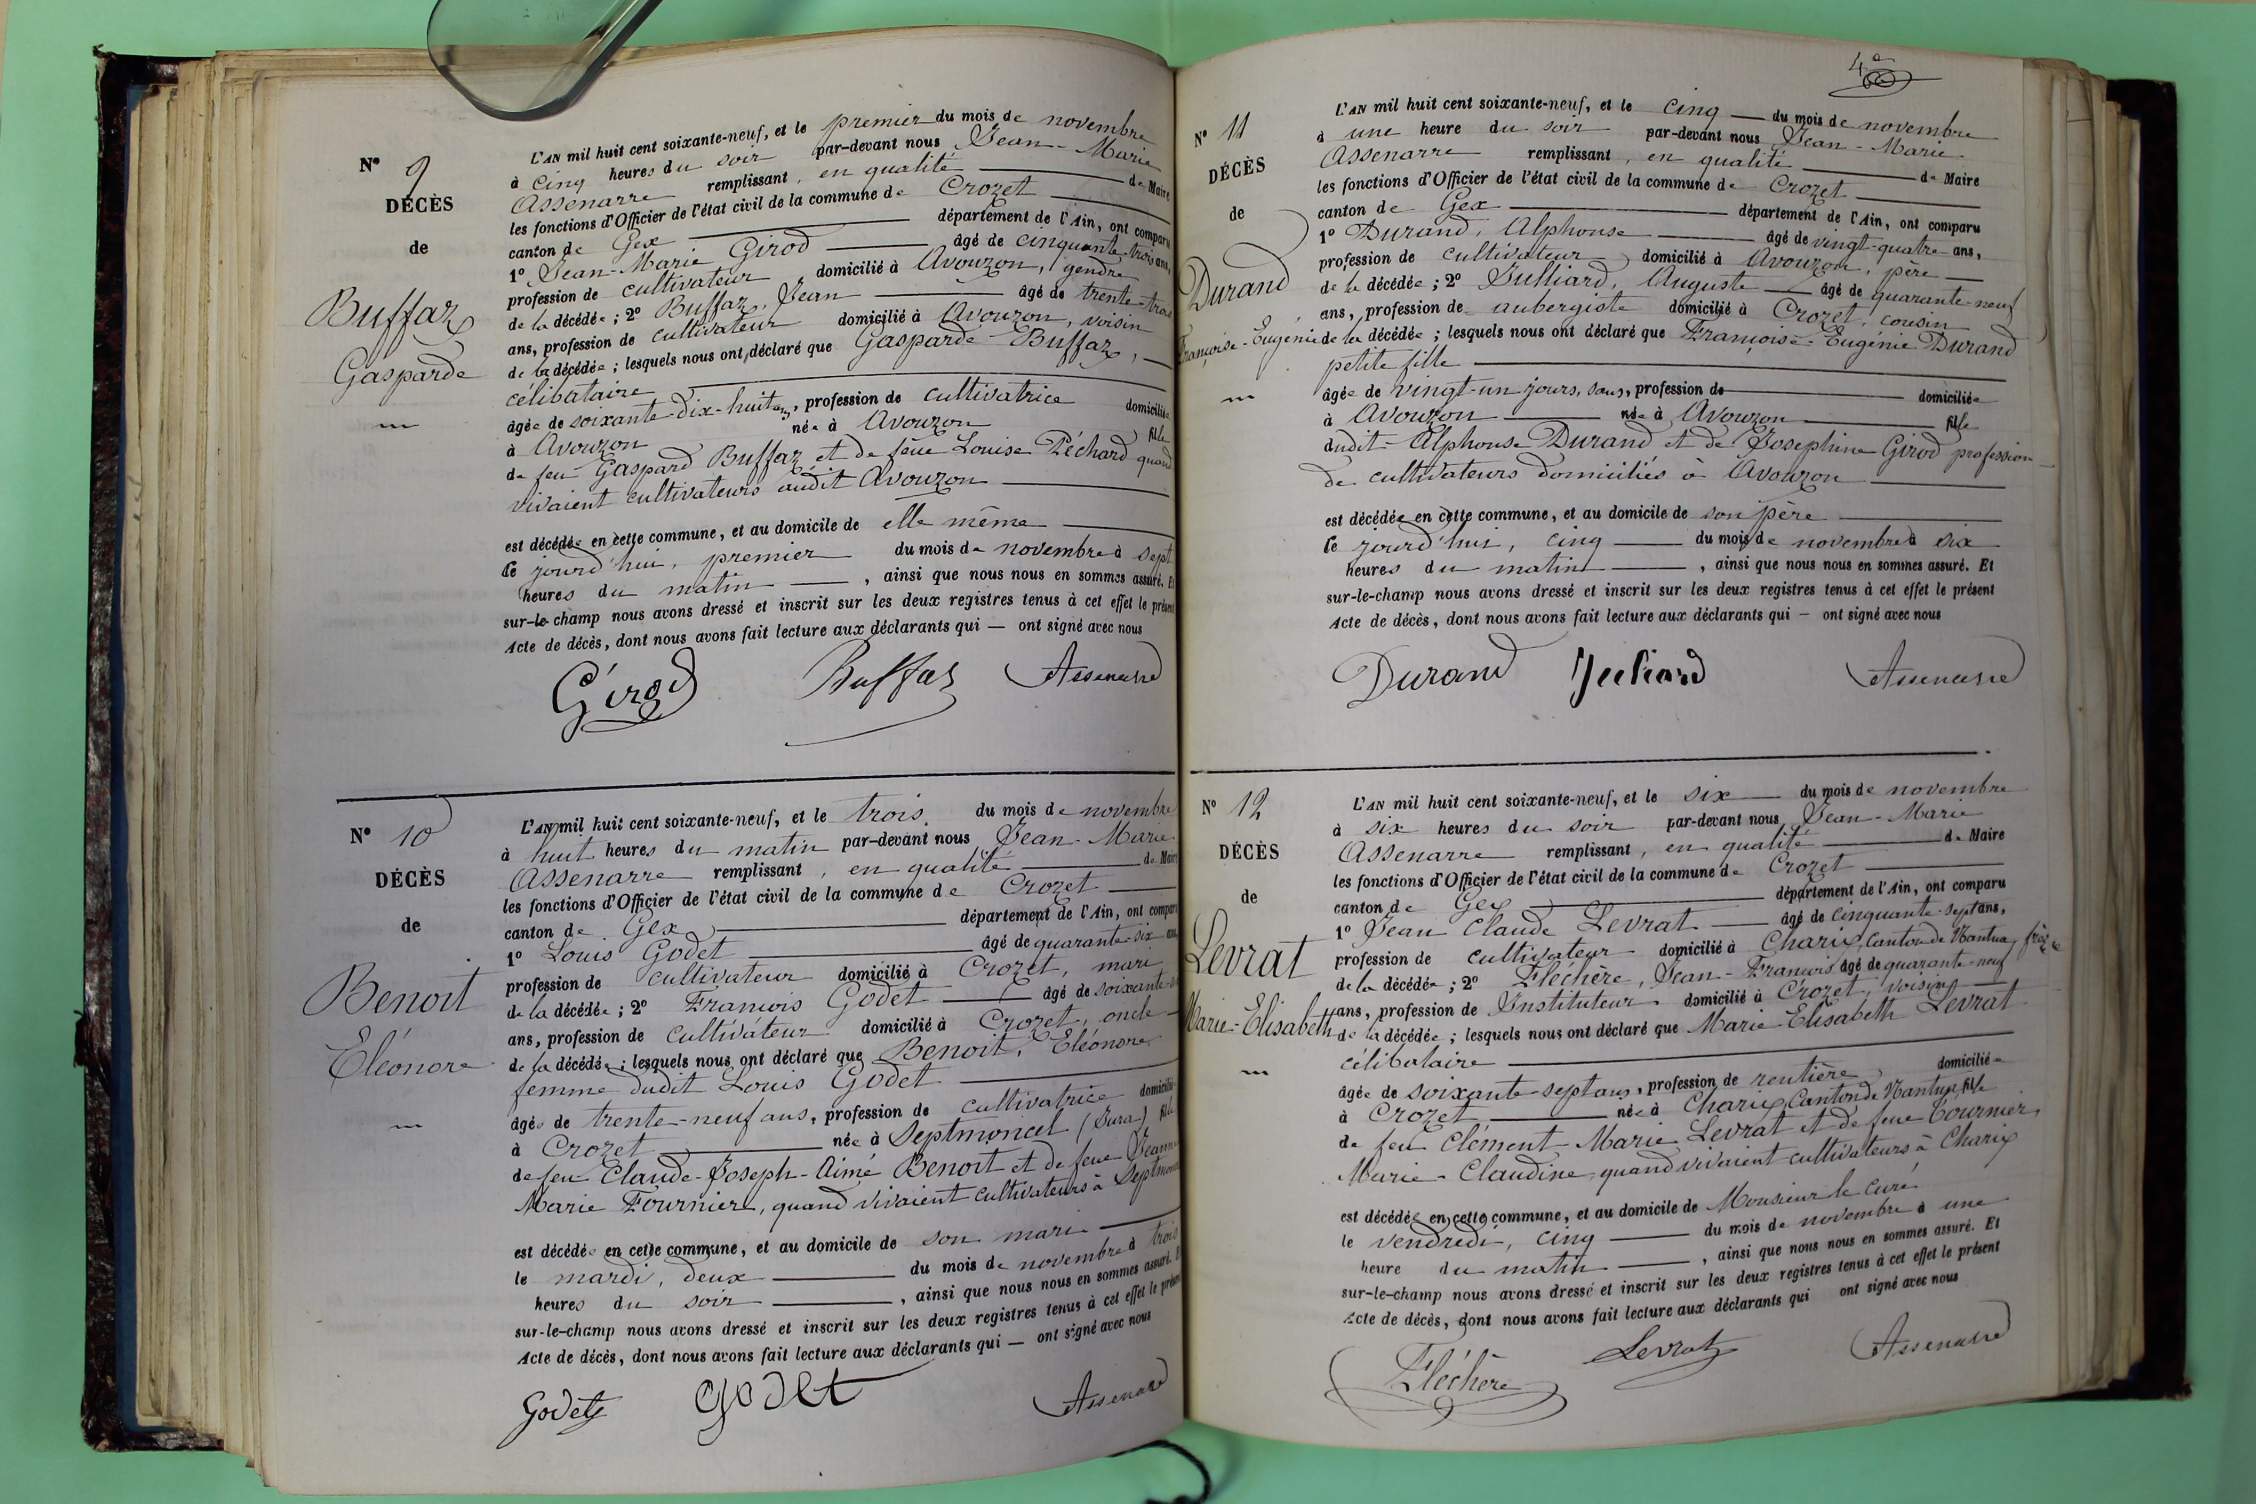 N° 9
DÉCÈS
de
Buffaz
Gasparde
L'AN mil huit cent soixante-neuf, et le premier du mois de novembre
à cinq heures du soir par-devant nous Jean-Marie
Assenarre remplissant, en qualité de Maire
les fonctions d'Officier de l'état civil de la commune de Crozet
canton de Gex département de l'Ain, ont comparu
1° Jean-Marie Girod âgé de cinquante-trois ans,
profession de cultivateur domicilié à Avouzon, gendre
de la décédée; 2° Buffaz, Jean âgé de trente-trois
ans, profession de cultivateur domicilié à Avouzon, voisin
de la décédée; lesquels nous ont déclaré que Gasparde Buffaz,
célibataire
âgée de soixante-dix-huit ans, profession de cultivatrice domiciliée
à Avouzon née à Avouzon fille
de feu Gaspard Buffaz et de feue Louise Péchard quand
vivaient cultivateurs audit Avouzon
est décédée en cette commune, et au domicile de elle même
Ce jourd'hui, premier du mois de novembre à sept
heures du matin, ainsi que nous nous en sommes assuré. Et
sur-le-champ nous avons dressé et inscrit sur les deux registres tenus à cet effet le présent
Acte de décès, dont nous avons fait lecture aux déclarants qui — ont signé avec nous
Girod Buffaz Assenarre
N° 10
DÉCÈS
de
Benoit
Eléonore
L'AN mil huit cent soixante-neuf, et le trois du mois de novembre
à huit heures du matin par-devant nous Jean-Marie
Assenarre remplissant, en qualité de Maire
les fonctions d'Officier de l'état civil de la commune de Crozet
canton de Gex département de l'Ain, ont comparu
1° Louis Godet âgé de quarante-six ans,
profession de cultivateur domicilié à Crozet, mari
de la décédée; 2° François Godet âgé de soixante
ans, profession de cultivateur domicilié à Crozet, oncle
de la décédée; lesquels nous ont déclaré que Benoit, Eléonore
femme dudit Louis Godet
âgée de trente-neuf ans, profession de cultivatrice domiciliée
à Crozet née à Septmoncel (Jura) fille
de feu Claude-Joseph-Aimé Benoit et de feue Jeanne
Marie Fournier, quand vivaient cultivateurs à Septmoncel
est décédée en cette commune, et au domicile de son mari
le mardi, deux du mois de novembre à trois
heures du soir, ainsi que nous nous en sommes assuré. Et
sur-le-champ nous avons dressé et inscrit sur les deux registres tenus à cet effet le présent
Acte de décès, dont nous avons fait lecture aux déclarants qui — ont signé avec nous
Godet Godet Assenarre
4e
N° 11
DÉCÈS
de
Durand
Françoise-Eugénie
L'AN mil huit cent soixante-neuf, et le cinq du mois de novembre
à une heure du soir par-devant nous Jean-Marie
Assenarre remplissant, en qualité de Maire
les fonctions d'Officier de l'état civil de la commune de Crozet
canton de Gex département de l'Ain, ont comparu
1° Durand, Alphonse âgé de vingt-quatre ans,
profession de cultivateur domicilié à Avouzon, père
de la décédée; 2° Julliard, Auguste âgé de quarante-neuf
ans, profession de aubergiste domicilié à Crozet, cousin
de la décédée; lesquels nous ont déclaré que Françoise-Eugénie Durand
petite fille
âgée de vingt-un jours, sans, profession de domiciliée
à Avouzon née à Avouzon fille
dudit Alphonse Durand et de Joséphine Girod profession
de cultivateurs domiciliés à Avouzon
est décédée en cette commune, et au domicile de son père
Ce jourd'hui, cinq du mois de novembre à six
heures du matin, ainsi que nous nous en sommes assuré. Et
sur-le-champ nous avons dressé et inscrit sur les deux registres tenus à cet effet le présent
Acte de décès, dont nous avons fait lecture aux déclarants qui — ont signé avec nous
Durand Julliard Assenarre
N° 12
DÉCÈS
de
Levrat
Marie-Elisabeth
L'AN mil huit cent soixante-neuf, et le six du mois de novembre
à six heures du soir par-devant nous Jean-Marie
Assenarre remplissant, en qualité de Maire
les fonctions d'Officier de l'état civil de la commune de Crozet
canton de Gex département de l'Ain, ont comparu
1° Jean Claude Levrat âgé de cinquante-sept ans,
profession de cultivateur domicilié à Charix, Canton de Nantua, frère
de la décédée; 2° Fléchère, Jean-François âgé de quarante-neuf
ans, profession de Instituteur domicilié à Crozet, voisin
de la décédée; lesquels nous ont déclaré que Marie Elisabeth Levrat
célibataire
âgée de soixante-sept ans, profession de rentière, domiciliée
à Crozet née à Charix, Canton de Nantua, fille
de feu Clément-Marie Levrat et de feue Tournier,
Marie-Claudine quand vivaient cultivateurs à Charix
est décédée en cette commune, et au domicile de Monsieur le curé
le vendredi, cinq du mois de novembre à une
heure du matin, ainsi que nous nous en sommes assuré. Et
sur-le-champ nous avons dressé et inscrit sur les deux registres tenus à cet effet le présent
Acte de décès, dont nous avons fait lecture aux déclarants qui ont signé avec nous
Fléchère Levrat Assenarre